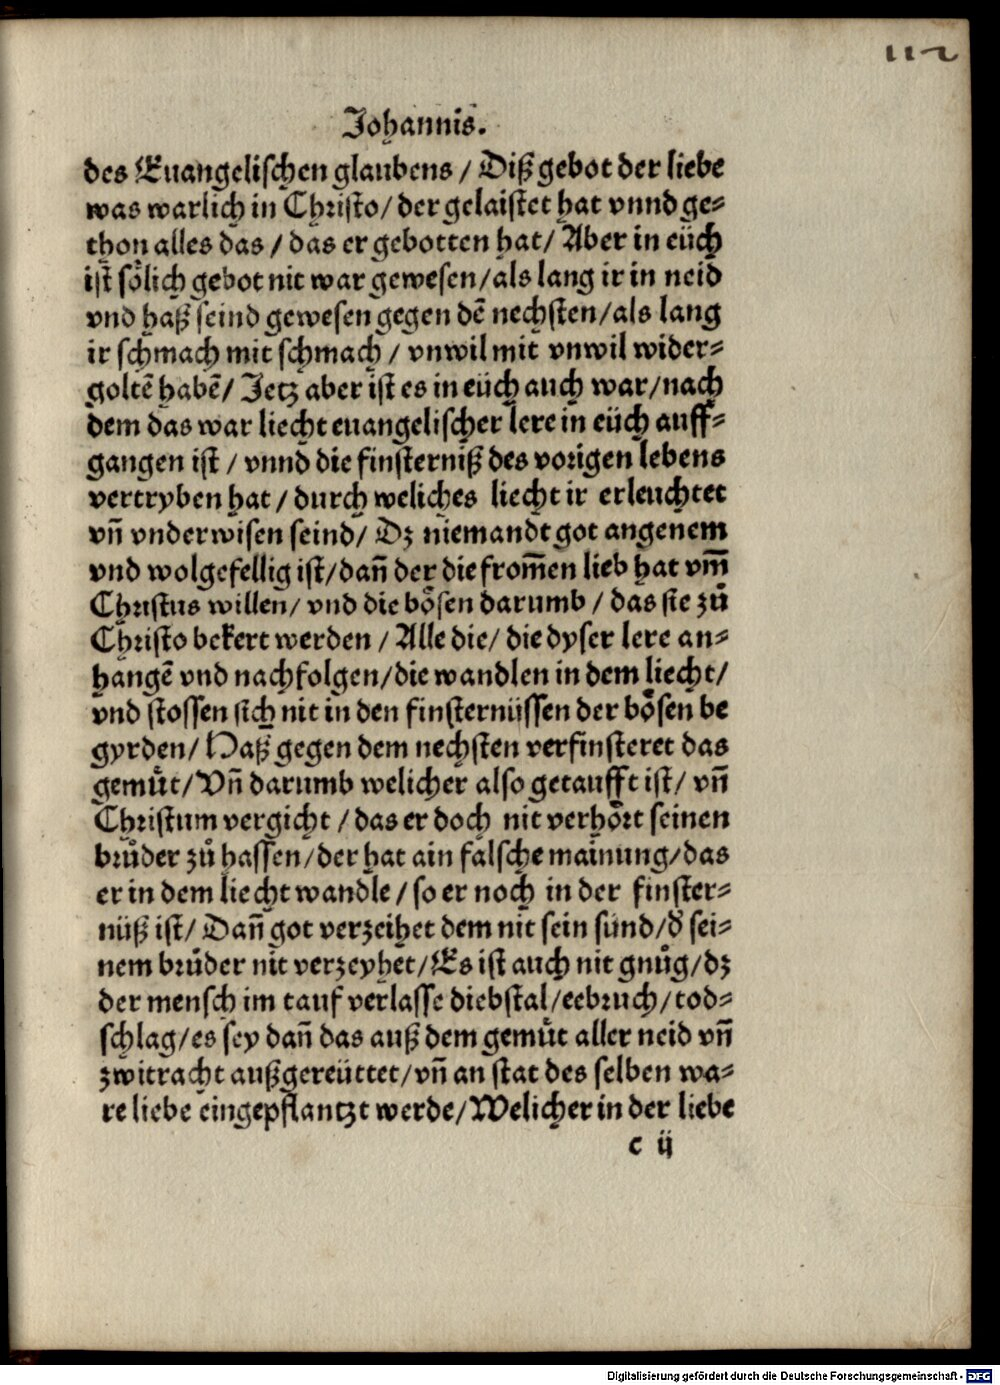 112
Johannis.
des Euangelischen glaubens / Diß gebot der liebe
was warlich in Christo / der gelaistet hat vnnd ge⸗
thon alles das / das er gebotten hat / Aber in eüch
ist soͤlich gebot nit war gewesen / als lang ir in neid
vnd haß seind gewesen gegen dē nechsten / als lang
ir schmach mit schmach / vnwil mit vnwil wider⸗
goltē habē / Jetz aber ist es in eüch auch war / nach
dem das war liecht euangelischer lere in eüch auff⸗
gangen ist / vnnd die finsterniß des vorigen lebens
vertryben hat / durch weliches liecht ir erleuchtet
vn̄ vnderwisen seind / Dz niemandt got angenem
vnd wolgefellig ist / dan̄ der die from̄en lieb hat vm̄
Christus willen / vnd die boͤsen darumb / das sie zuͦ
Christo bekert werden / Alle die / die dyser lere an⸗
hangē vnd nachfolgen / die wandlen in dem liecht /
vnd stossen sich nit in den finsternüssen der boͤsen be
gyrden / Haß gegen dem nechsten verfinsteret das
gemuͤt / Vn̄ darumb welicher also getaufft ist / vn̄
Christum vergicht / das er doch nit verhoͤrt seinen
bruͦder zuͦ hassen / der hat ain falsche mainung / das
er in dem liecht wandle / so er noch in der finster⸗
nüß ist / Dan̄ got verzeihet dem nit sein sünd / d̄ sei⸗
nem bruͦder nit verzeyhet / Es ist auch nit gnuͦg / dz
der mensch im tauf verlasse diebstal / eebruch / tod⸗
schlag / es sey dan̄ das auß dem gemuͤt aller neid vn̄
zwitracht außgereüttet / vn̄ an stat des selben wa⸗
re liebe eingepflantzt werde / Welicher in der liebe
c ij
Digitalisierung gefördert durch die Deutsche Forschungsgemeinschaft - DFG